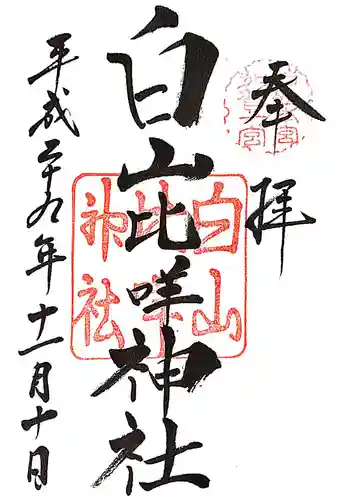 奉拝
白山比咩神社
平成二十九年十一月十日
白山
比咩
神社